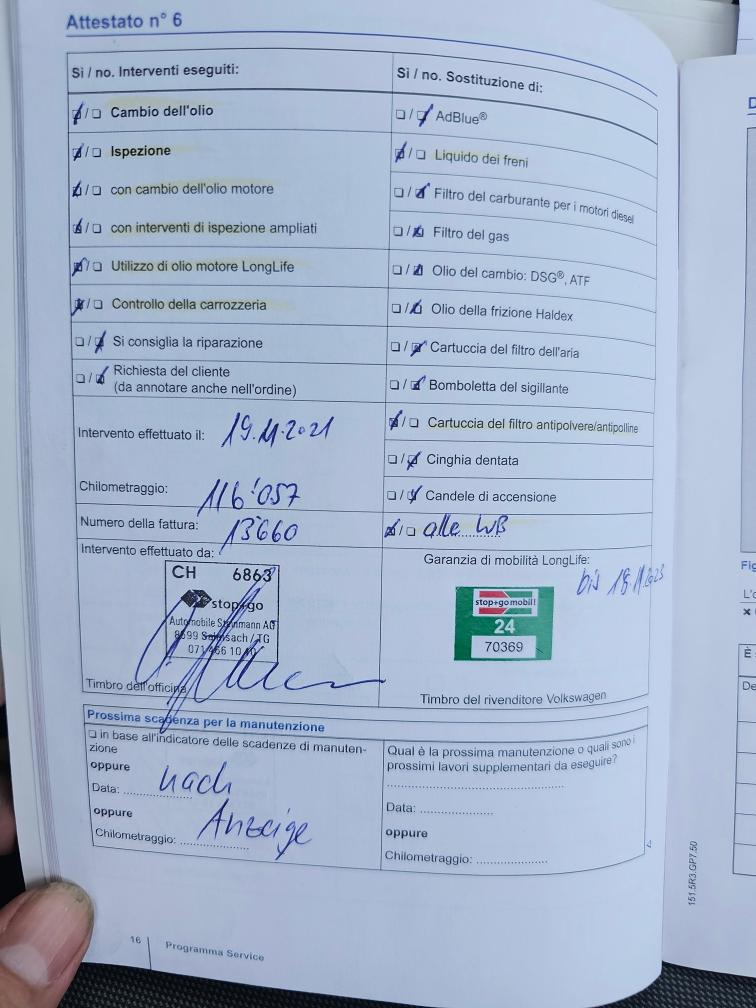 Attestato n° 6
Sì / no. Interventi eseguiti:
❏ / ❏ Cambio dell'olio
❏ / ❏ Ispezione
❏ / ❏ con cambio dell'olio motore
❏ / ❏ con interventi di ispezione ampliati
❏ / ❏ Utilizzo di olio motore LongLife
❏ / ❏ Controllo della carrozzeria
❏ / ❏ Si consiglia la riparazione
❏ / ❏ Richiesta del cliente
(da annotare anche nell'ordine)
Intervento effettuato il: 19.11.2021
Chilometraggio: 116'057
Numero della fattura: 13'660
Intervento effettuato da:
CH 6863
stop+go
Automobile AG
8599 Salmsach / TG
Timbro dell'officina
Sì / no. Sostituzione di:
❏ / ❏ AdBlue®
❏ / ❏ Liquido dei freni
❏ / ❏ Filtro del carburante per i motori diesel
❏ / ❏ Filtro del gas
❏ / ❏ Olio del cambio: DSG®, ATF
❏ / ❏ Olio della frizione Haldex
❏ / ❏ Cartuccia del filtro dell'aria
❏ / ❏ Bomboletta del sigillante
❏ / ❏ Cartuccia del filtro antipolvere/antipolline
❏ / ❏ Cinghia dentata
❏ / ❏ Candele di accensione
❏ / ❏ alle WB
Garanzia di mobilità LongLife:
bis
stop+go mobil!
24
70369
Timbro del rivenditore Volkswagen
Prossima scadenza per la manutenzione
❏ in base all'indicatore delle scadenze di manuten-
zione
oppure
Data: ................ nach
oppure
Chilometraggio: ................ Anzeige
Qual è la prossima manutenzione o quali sono i
prossimi lavori supplementari da eseguire?
........................................
Data: ................
oppure
Chilometraggio: ................
16
Programma Service
151.5R3.GP7.50
D
Fig
L'o
È
De